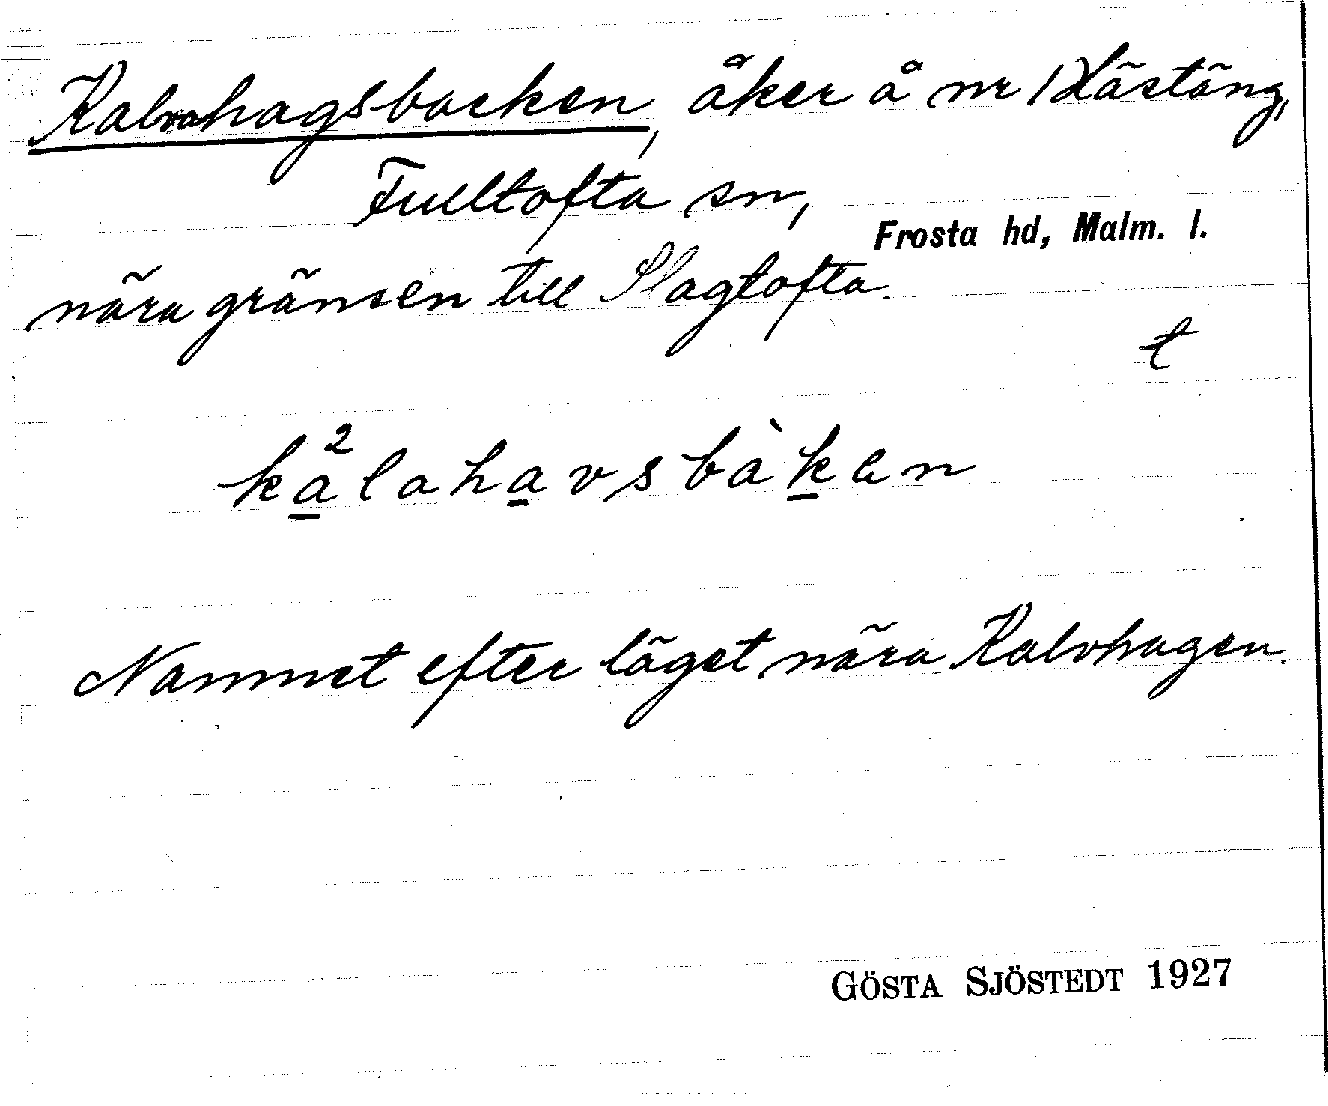 Kalvahagsbacken, åker å nr 1 Hästäng,
Fulltofta sn,
Frosta hd, Malm. l.
nära gränsen till Slagtofta.
t
ka̱²laha̱vsbàḵen
Namnet efter läget nära Kalvhagen.
GÖSTA SJÖSTEDT 1927